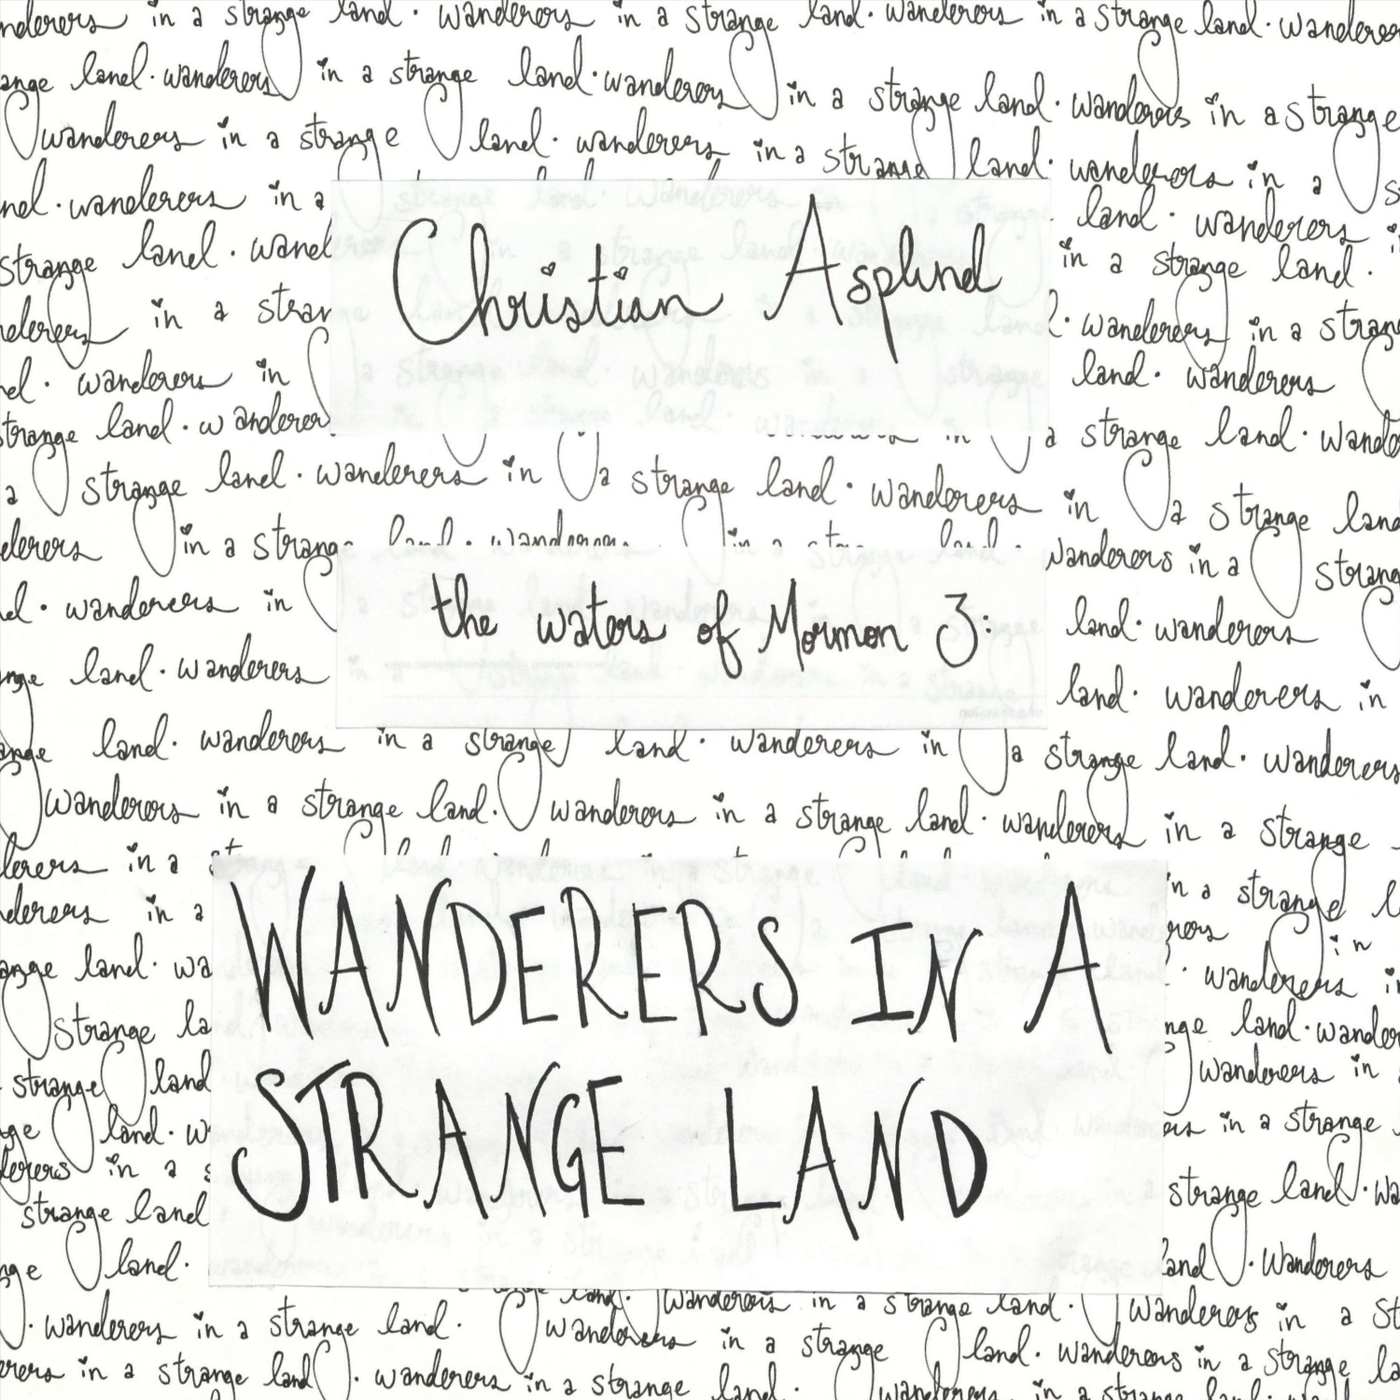 nderers in a strange land · wanderers in a strange land · wanderers in a strange land · wanderers
ange land · wanderers in a strange land · wanderers in a strange land · wanderers in a strange
wanderers in a strange land · wanderers in a strange land · wanderers in a
nd · wanderers in a
land · wanderers
strange land · wand
in a strange land ·
Christian Asplund
derers in a stran
· wanderers in a strang
d · wanderers in
land · wanderers
strange land · wanderer
a strange land · wande
a strange land · wanderers in a strange land · wanderers in a strange land
derers in a strange land · wanderers in a land · wanderers in a strang
the waters of Mormon 3:
d · wanderers in
land · wanderers
nge land · wanderers
land · wanderers in
ange land · wanderers in a strange land · wanderers in a strange land · wanderers
wanderers in a strange land · wanderers in a strange land · wanderers in a strange
derers in a
in a strange
derers in a
WANDERERS IN A
STRANGE LAND
rers in
ange land · wa
· wanderers in
strange la
nge land · wander
strange land
wanderers in
ge land · w
ers in a strange
derers in a s
strange land · wa
strange land
ge land ·
and · wanderers
· wanderers in a strange land · wanderers in a strange land · wanderers in a st
wanderers in a strange land · wanderers in a strange la
erers in a strange land · wanderers in a strange land · wanderers in a strange land